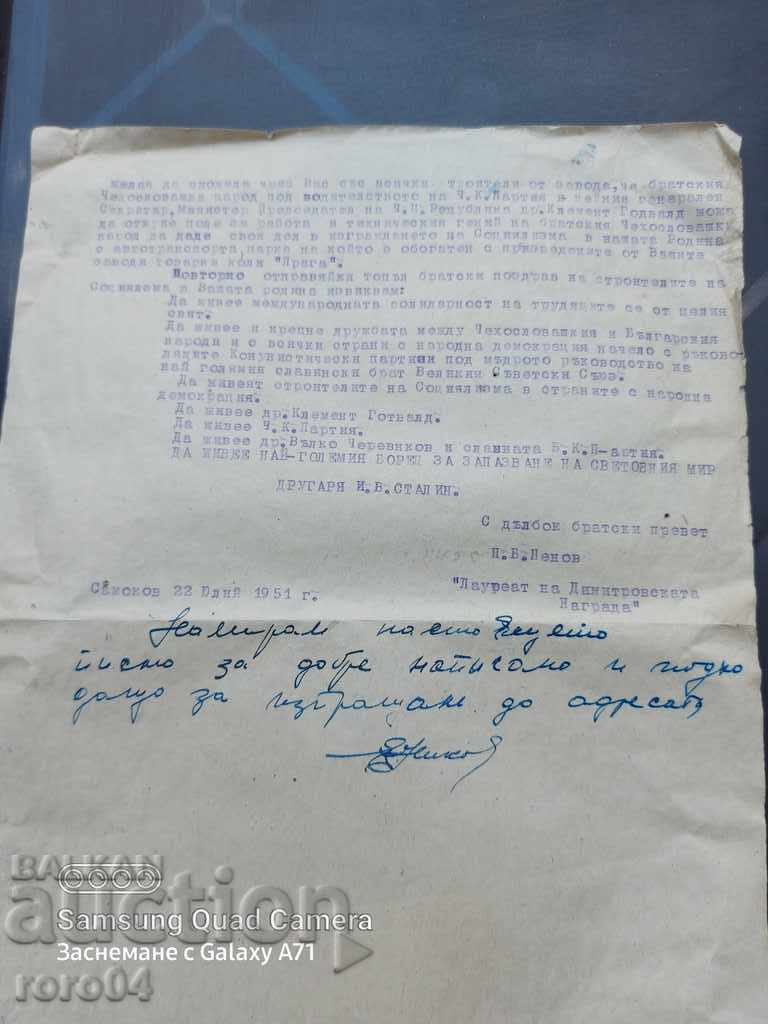 желая да споделя чрез Вас със всички троители от завода, че братския
Чехословашки народ под водителството на Ч.К.Партия и нейния генерален
Секретар, Министер Председател на Ч.Н.Република др.Клемент Годвалд можа
да открие поле за работа и технически гений на братския Чехословашки
народ да даде своя дел в изграждането на Социализма в нашата Родина
с автотранспорта, парка на който в обогатен с произведените от Вашите
заводи товарни коли "Прага".
Повторно отправяйки топъл братски поздрав на строителите на
Социализма в Вашата родина извиквам:
Да живее международната солидарност на трудящите се от целия
свят.
Да живее и крепне дружбата между Чехословашкия и Българския
народи и с всички страни с народна демокрация начело с ръково
дящите Комунистически партиии под мъдрото ръководство на
най големия славянски брат Великия Съветски Съюз.
Да живеят строителите на Социализма в страните с народна
демокрация.
Да живее др.Клемент Готвалд.
Да живее Ч.К.Партия.
Да живее др.Вълко Червенков и славната Б.К.П-артия.
ДА ЖИВЕЕ НАЙ-ГОЛЕМИЯ БОРЕЦ ЗА ЗАПАЗВАНЕ НА СВЕТОВНИЯ МИР
ДРУГАРЯ И.В.СТАЛИН.
С дълбок братски превет
П.Б.Пенов
Самоков 22 Юлий 1951 г.
"Лауреат на Димитровската
Награда"
Намирам настоящето
писмо за добре написано и подхо
дящо за изпращане до адресата
BALKAN
auction
Samsung Quad Camera
Заснемане с Galaxy A71
roro04